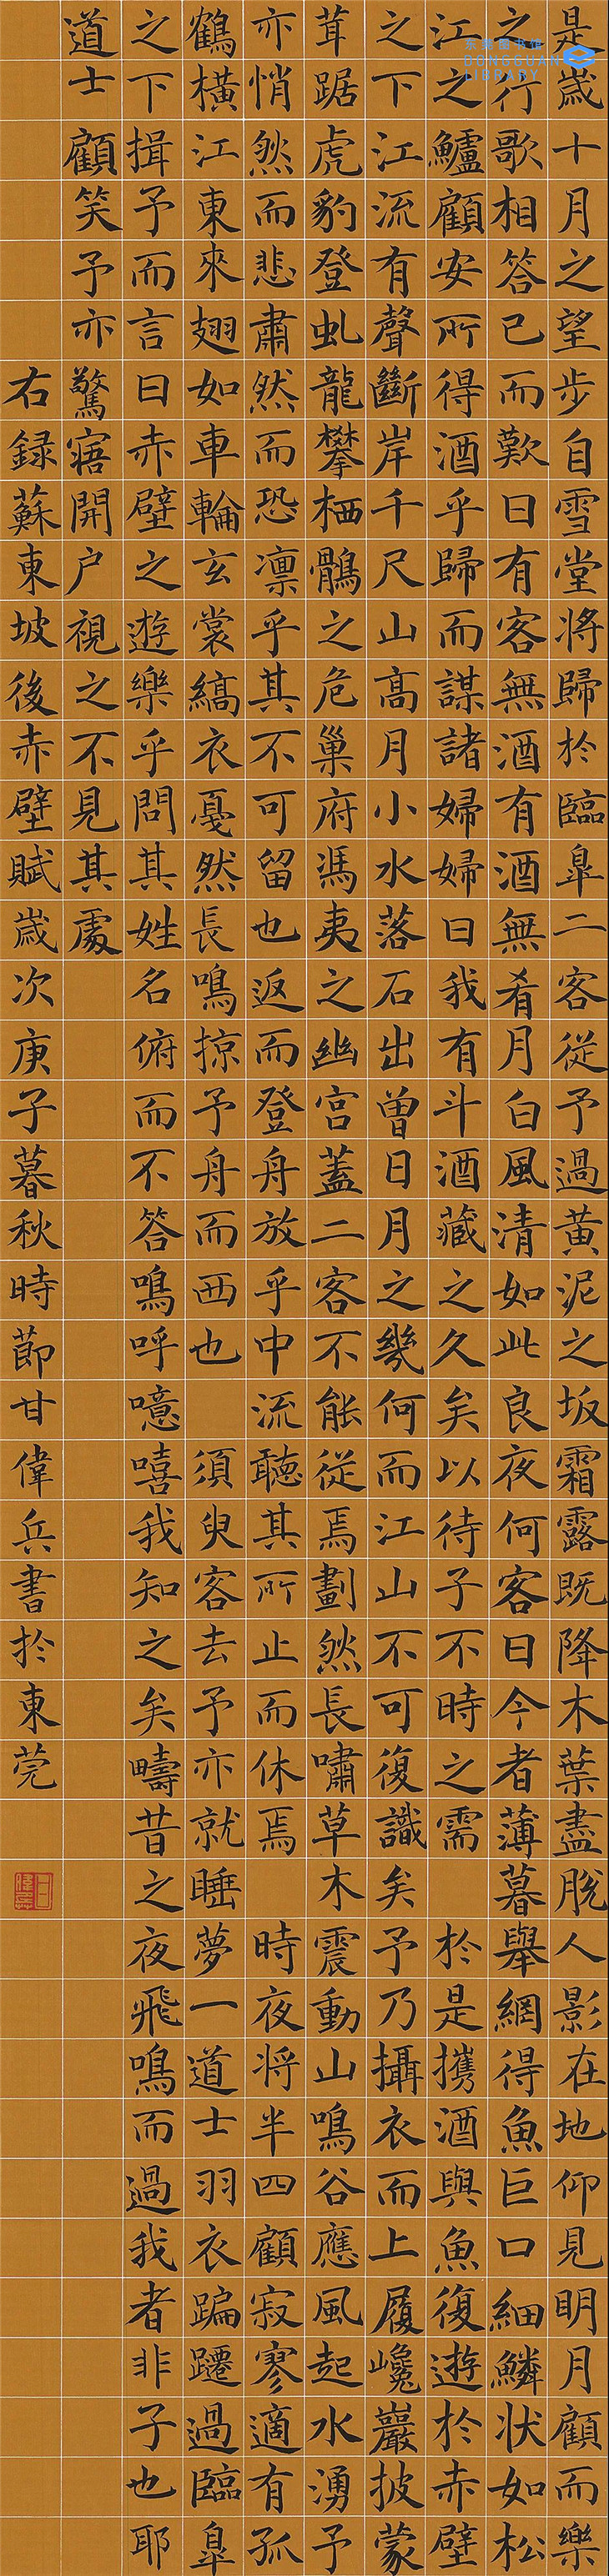 是歲十月之望步自雪堂將歸於臨皐二客從予過黃泥之坂霜露既降木葉盡脫人影在地仰見明月顧而樂
之行歌相答已而歎曰有客無酒有酒無肴月白風清如此良夜何客曰今者薄暮舉網得魚巨口細鱗狀如松
江之鱸顧安所得酒乎歸而謀諸婦婦曰我有斗酒藏之久矣以待子不時之需 於是攜酒與魚復遊於赤壁
之下江流有聲斷岸千尺山高月小水落石出曾日月之幾何而江山不可復識矣予乃攝衣而上履巉巖披蒙
茸踞虎豹登虬龍攀栖鶻之危巢府馮夷之幽宮蓋二客不能從焉劃然長嘯草木震動山鳴谷應風起水湧予
亦悄然而悲肅然而恐凛乎其不可留也返而登舟放乎中流聽其所止而休焉 時夜將半四顧寂寥適有孤
鶴橫江東來翅如車輪玄裳縞衣戛然長鳴掠予舟而西也 須臾客去予亦就睡夢一道士羽衣蹁躚過臨皐
之下揖予而言曰赤壁之遊樂乎問其姓名俯而不答鳴呼噫嘻我知之矣疇昔之夜飛鳴而過我者非子也耶
道士顧笑予亦驚寤開户視之不見其處
右録蘇東坡後赤壁賦歲次庚子暮秋時節甘偉兵書於東莞
东莞图书馆
DONGGUAN
LIBRARY